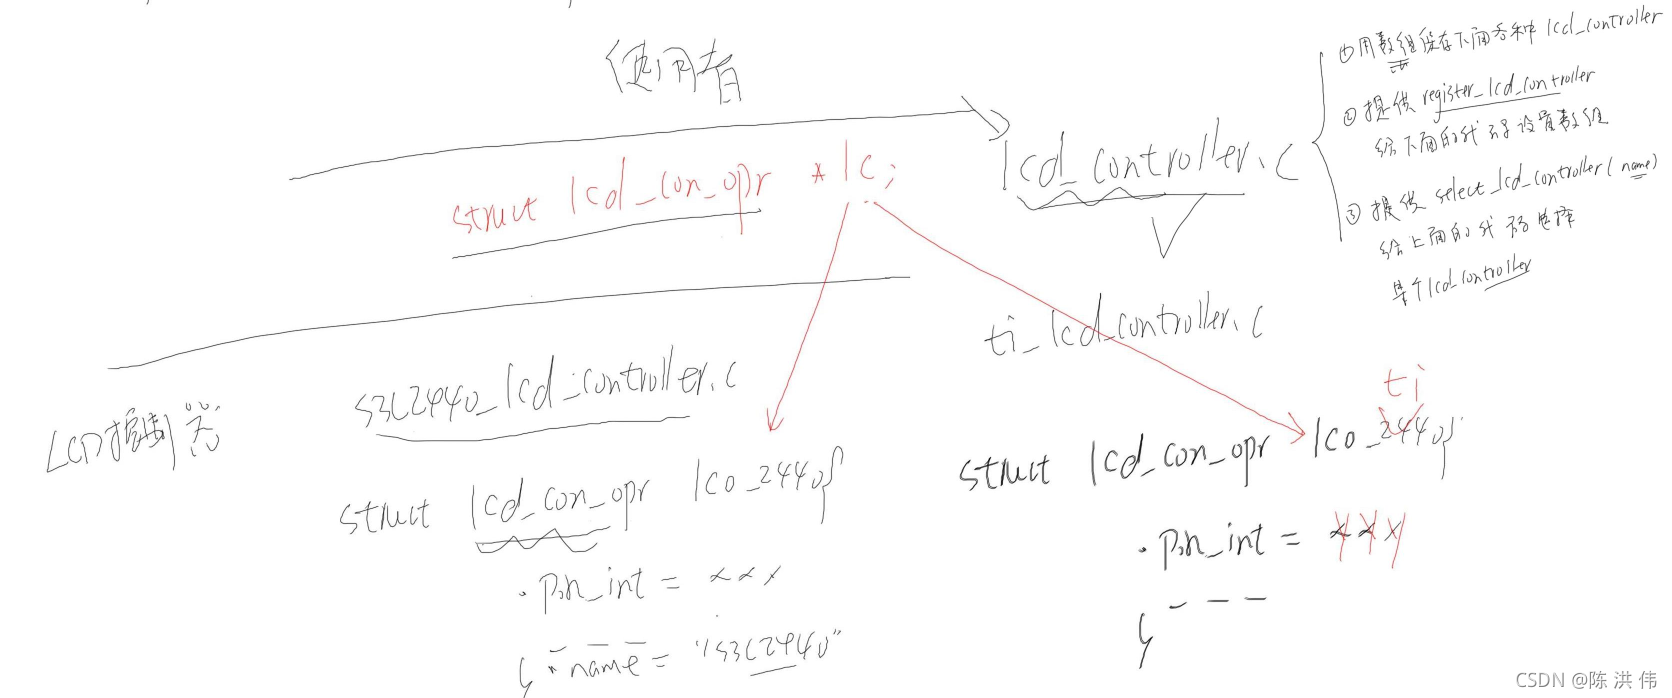 使用者
struct lcd_con_opr * lc;
lcd_controller.c
①用数组保存下面各种 lcd_controller
②提供 register_lcd_controller
给下面的代码设置数组
③提供 select_lcd_controller(name)
给上面的代码选择
某个lcd_controller
LCD控制器
S3C2440_lcd_controller.c
struct lcd_con_opr lco_2440{
.pin_int = xxx
} . name = "S3C2440"
ti_lcd_controller.c
ti
struct lcd_con_opr lco_2440{
.pin_int = xxx
}
CSDN @陈 洪 伟